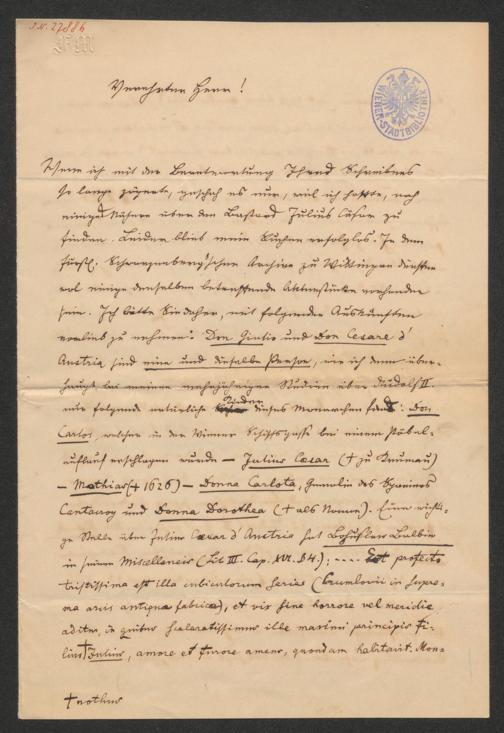 J.N. 27886
WIENER-STADTBIBLIOTHEK
Verehrter Herr!
Wenn ich mit der Beantwortung Ihres Schreibens
so lange zögerte, geschah es nur, weil ich hoffte, noch
einiges Nähere über den Bastard Julius Cäsar zu
finden. Leider blieb mein Suchen erfolglos. In dem
fürstl. Schwarzenberg'schen Archive zu Wittingau dürften
wol einige denselben betreffende Aktenstücke vorhanden
sein. Ich bitte Sie daher, mit folgenden Auskünften
vorlieb zu nehmen: Don Giulio und Don Cesare d'
Austria sind eine und dieselbe Person, wie ich denn über-
haupt bei meinen mehrjährigen Studien über Rudolf II.
nur folgende natürliche Kinder dieses Monarchen fand: Don
Carlos, welcher in der Wiener Schiffgasse bei einem Pöbel-
auflauf erschlagen wurde – Julius Caesar († zu Krumau)
– Mathias († 1626) – Donna Carlota, Gemalin des Spaniers
Cantacroy und Donna Dorothea († als Nonne). Eine wichti-
ge Stelle über Julius Caesar d'Austria hat Bohuslaw Balbin
in seinen Miscellaneis (Lib III. Cap. XVI. §4.): .... Est profecto
tristissima illa cubiculorum series (Crumlovii in supre-
ma arcis antiqua fabrica), et vix sine horrore vel meridie
aditur, in quibus sceleratissimus ille maximi principis fi-
lius † Julius, amore et furore amens, quondam habitavit. Mon-
† nothus